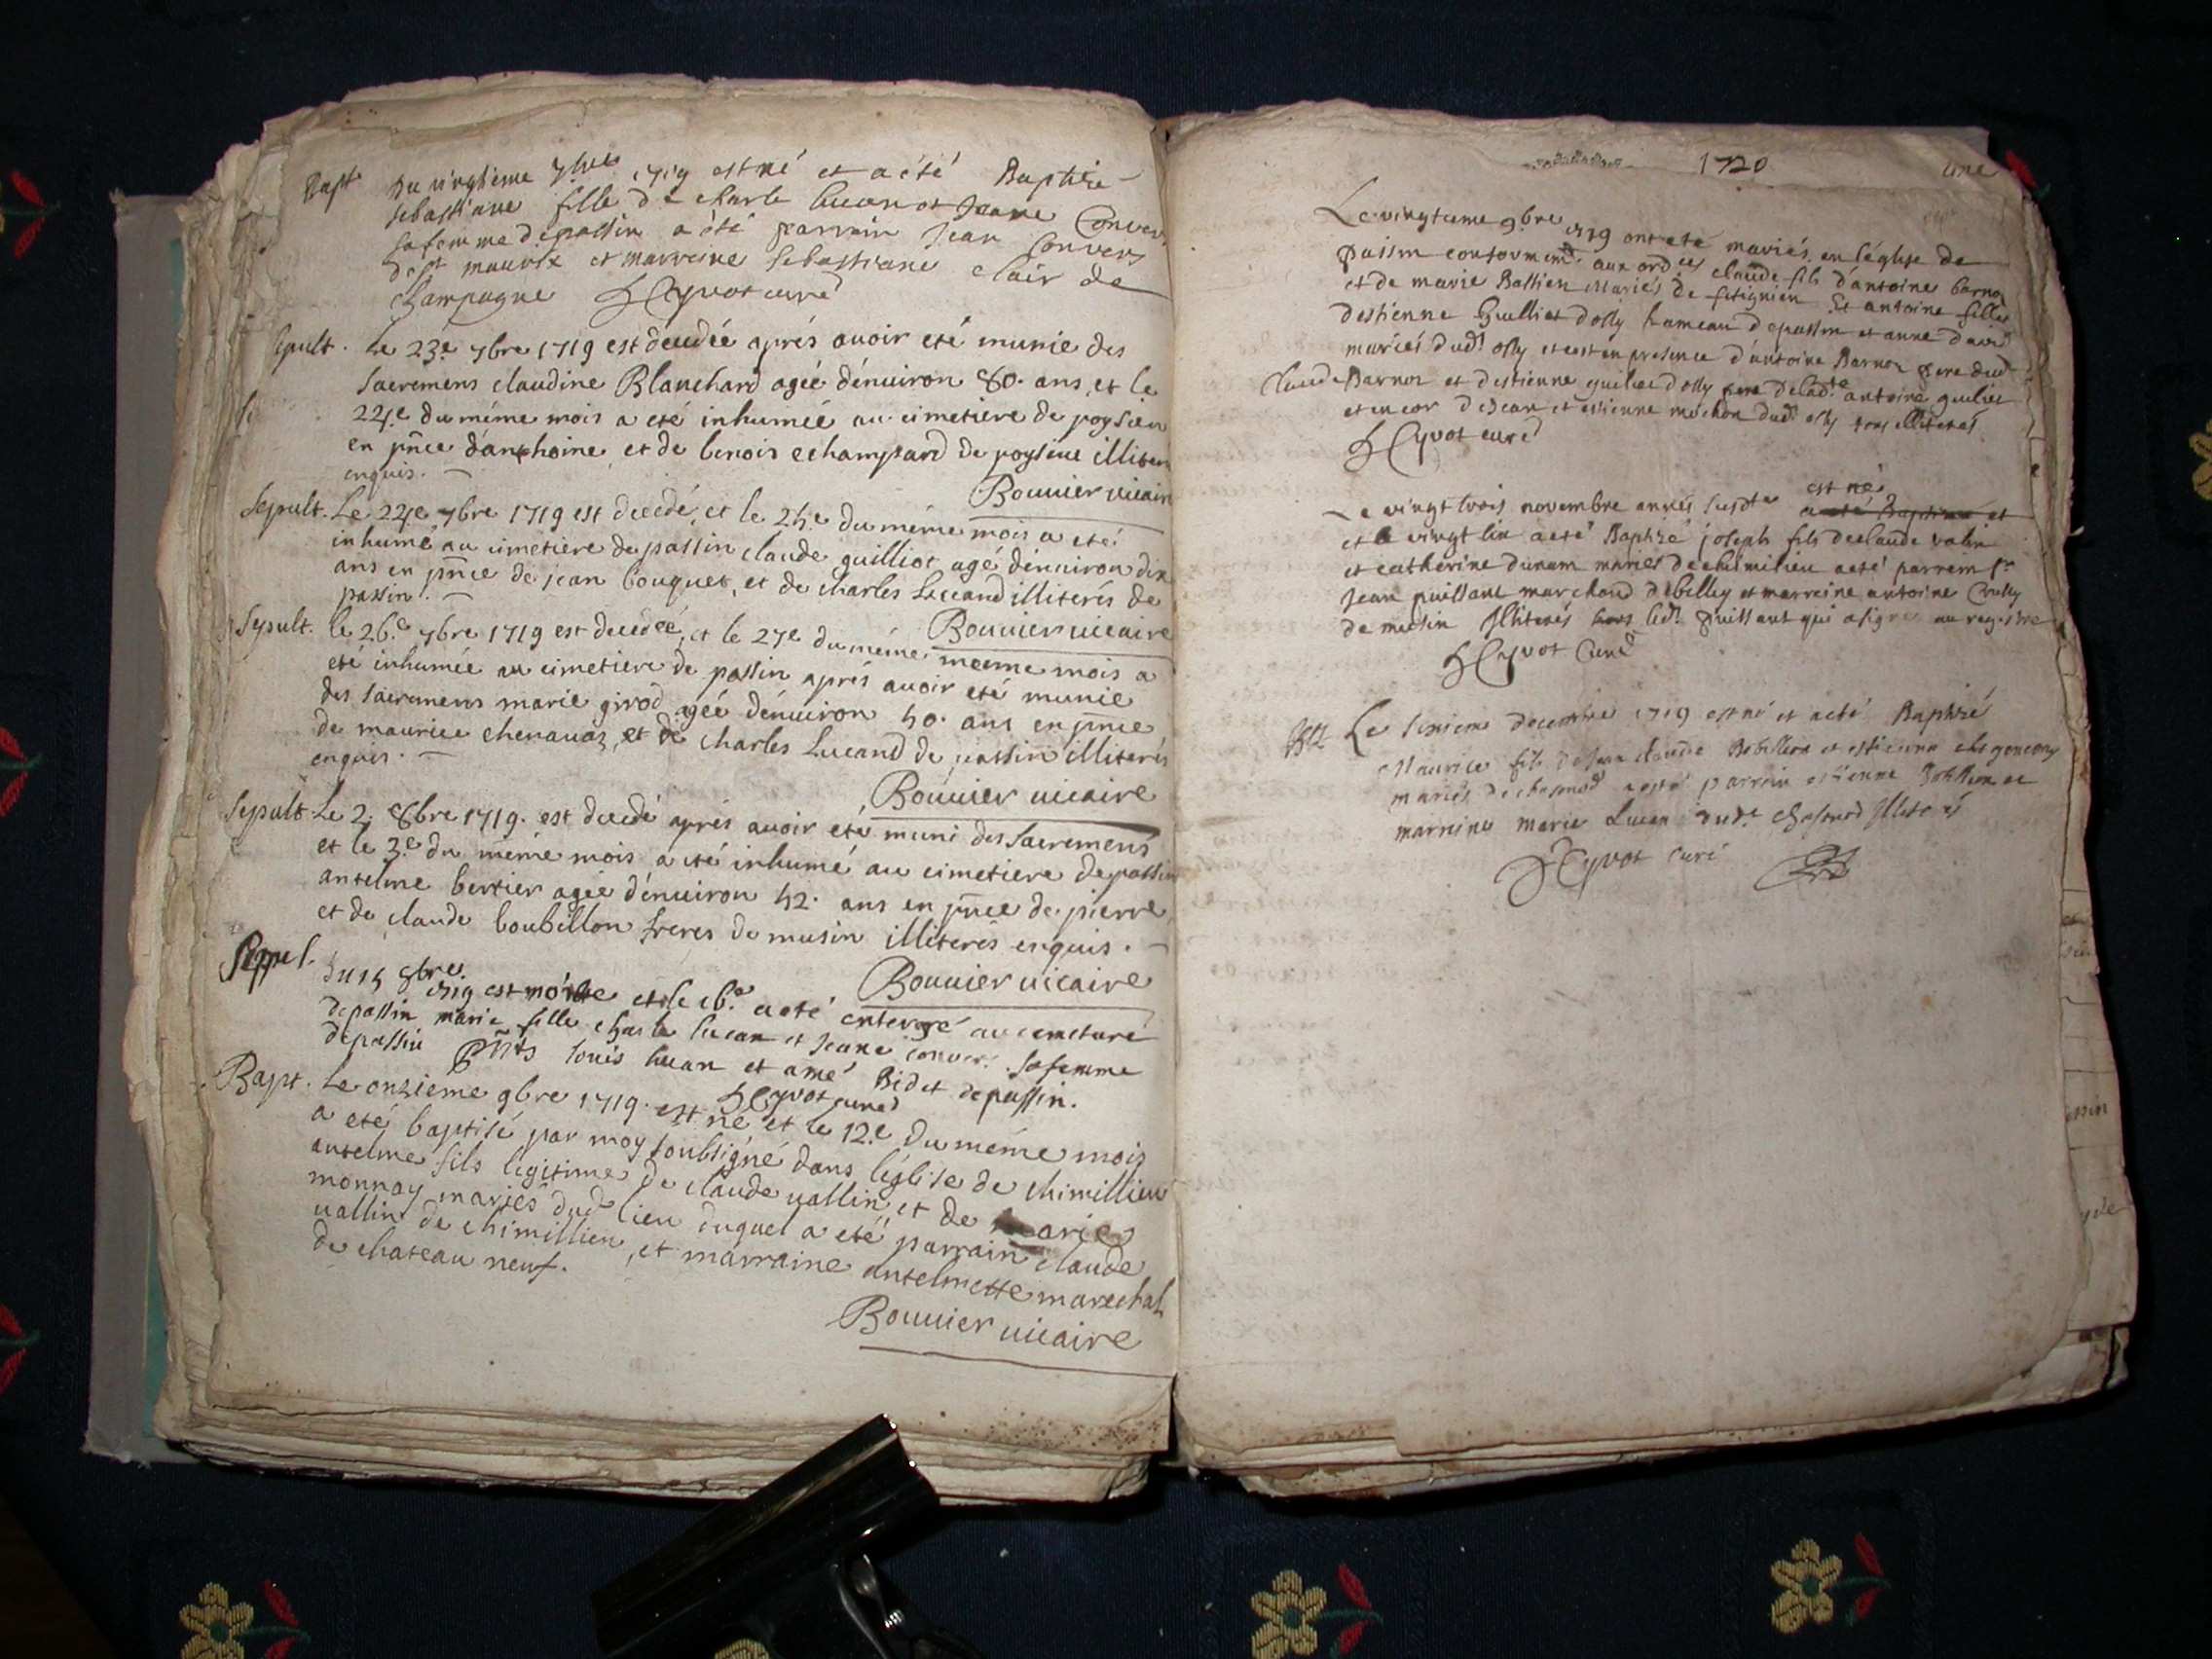 Bapt Du vingtieme 7bre 1719 est né et a été Baptisé
sebastiane fille de charle lucan et Jeane Convers
sa femme de passin a été parrain Jean Convers
de st maurix et marreine sebastiane clair de
champagne Heyvot curé
Sepult. Le 23e 7bre 1719 est decedée aprés auoir eté munie des
sacremens claudine Blanchard agée dénuiron 80. ans, et le
24e du méme mois a eté inhumée au cimetiere de poysieu
en pñce danthoine et de benois echampard de poysieu illiteres
enquis.
Bouuier uicaire
Sepult. Le 24e 7bre 1719 est decedé, et le 25e du méme mois a eté
inhumé au cimetiere de passin claude guilliot agé dénuiron dix
ans en pñce de jean bouquet, et de charles Lucand illiterés de
passin.
Bouuier uicaire
Sepult. le 26e 7bre 1719 est decedée, et le 27e du méme mesme mois a
eté inhumée au cimetiere de passin aprés auoir eté munie
des sacremens marie girod agée dénuiron 50. ans en pnce
de maurice chenauaz, et de charles Lucand de passin illiterés
enquis.
Bouuier uicaire
Sepult Le 2. 8bre 1719. est decedé aprés auoir eté muni des sacremens
et le 3e du méme mois a eté inhumé au cimetiere de passin
anselme bertier agée dénuiron 52. ans en pñce de pierre
et de claude boubillon freres de musin illiterés enquis.
Bouuier uicaire
Sepul. Du 15 8bre
1719 est morte et le 16e a eté enterré au cemeture
de passin marie fille charle lucan et Jeane convers sa femme
de passin pñts louis lucan et amé Bidet de passin.
Heyvot curé
Bapt. Le onzieme 9bre 1719. est né et le 12e du méme mois
a eté baptisé par moy soubsigné dans léglise de chimillieu
anselme fils legitime de claude uallin et de marie
monnay mariés dud lieu duquel a eté parrain claude
uallin de chimillieu, et marraine anselmette marechal
de chateau neuf.
Bouuier uicaire
1720
une
Le vingtieme 9bre 1719 ont eté mariés en l'église de
passin conformemt aux ordces claude fils d'antoine barnoz
et de marie Bastien mariés de fitignieu Et antoine fille
destienne Guilliet dossy hameau de passin et anne david
mariés dudt ossy et est en presence d'antoine Barnoz pere dud
claude Barnoz et destienne guiliet dossy pere de ladte antoine guiliet
et encor de Jean et estienne mochon dudt ossy tous illiterés
Heyvot curé
est né
Le vingt trois novembre année susdte a eté Baptisé et
et le vingt a eté Baptisé joseph fils de claude valin
et catherine dunam mariés de chilmilieu a eté parrein sr
Jean puissant marchand de belley et marreine antoine
de musin Illiterés hors ledt puissant qui a signé au registre
Heyvot Curé
Bapt Le sixieme decembre 1719 est né et a été Baptisé
Maurice fils de Jean claude Bobillion et estienna
mariés de chosnod a été parrain estienne Bobillion et
marreine marie Lucan dudt chosnod Illiterés
Heyvot curé